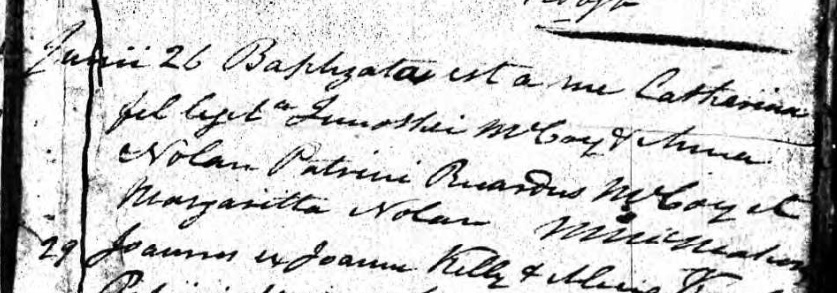 Junii 26 Baptizata est a me Catherina
fil legit a Timothei McCoy & Anna
Nolan Patrini Ricardus McCoy et
Margaritta Nolan
29 Joannes ex Joanne Kelly & Maria